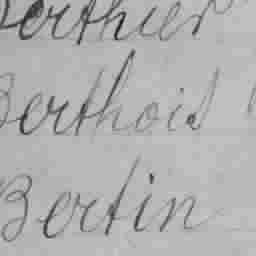 Berthier
Berthois
Bertin